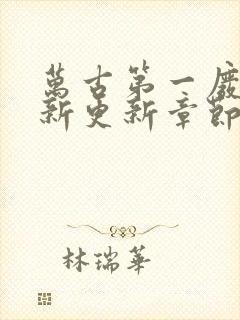 萬古第一廢
新更新章節
林瑞華